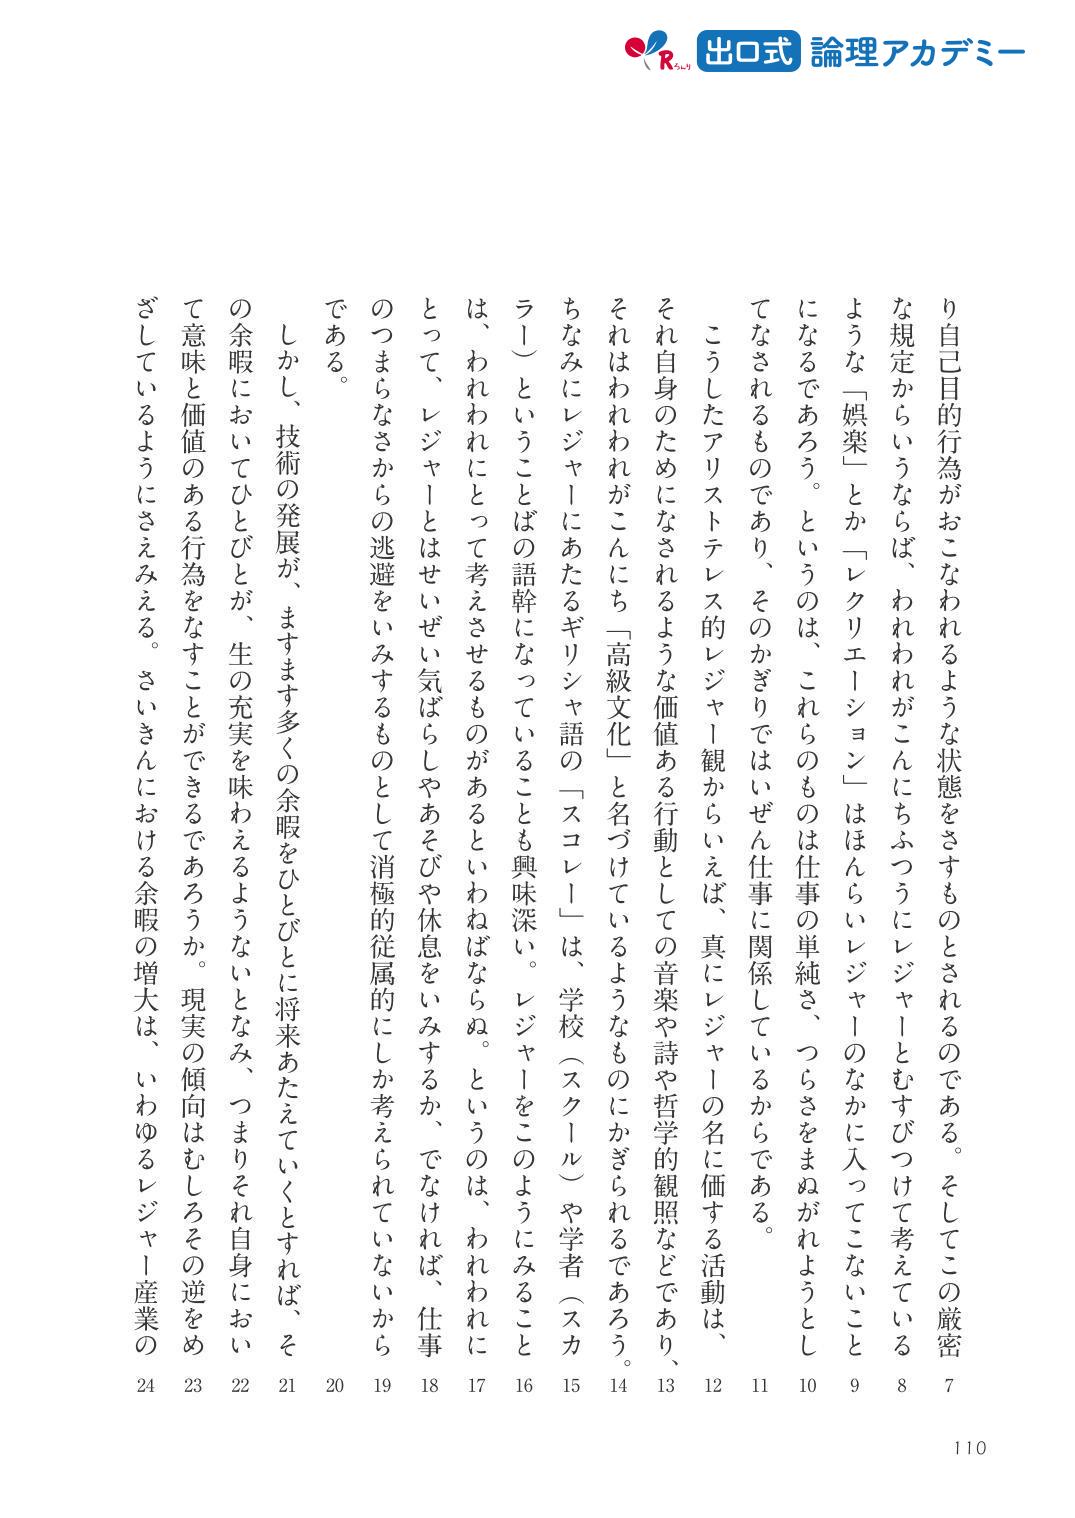 Rろんり 出口式 論理アカデミー
り自己目的行為がおこなわれるような状態をさすものとされるのである。そしてこの厳密 7
な規定からいうならば、われわれがこんにちふつうにレジャーとむすびつけて考えている 8
ような「娯楽」とか「レクリエーション」はほんらいレジャーのなかに入ってこないこと 9
になるであろう。というのは、これらのものは仕事の単純さ、つらさをまぬがれようとし 10
てなされるものであり、そのかぎりではいぜん仕事に関係しているからである。 11
こうしたアリストテレス的レジャー観からいえば、真にレジャーの名に価する活動は、 12
それ自身のためになされるような価値ある行動としての音楽や詩や哲学的観照などであり、 13
それはわれわれがこんにち「高級文化」と名づけているようなものにかぎられるであろう。 14
ちなみにレジャーにあたるギリシャ語の「スコレー」は、学校（スクール）や学者（スカ 15
ラー）ということばの語幹になっていることも興味深い。レジャーをこのようにみること 16
は、われわれにとって考えさせるものがあるといわねばならぬ。というのは、われわれに 17
とって、レジャーとはせいぜい気ばらしやあそびや休息をいみするか、でなければ、仕事 18
のつまらなさからの逃避をいみするものとして消極的従属的にしか考えられていないから 19
である。 20
しかし、技術の発展が、ますます多くの余暇をひとびとに将来あたえていくとすれば、そ 21
の余暇においてひとびとが、生の充実を味わえるようないとなみ、つまりそれ自身におい 22
て意味と価値のある行為をなすことができるであろうか。現実の傾向はむしろその逆をめ 23
ざしているようにさえみえる。さいきんにおける余暇の増大は、いわゆるレジャー産業の 24
110